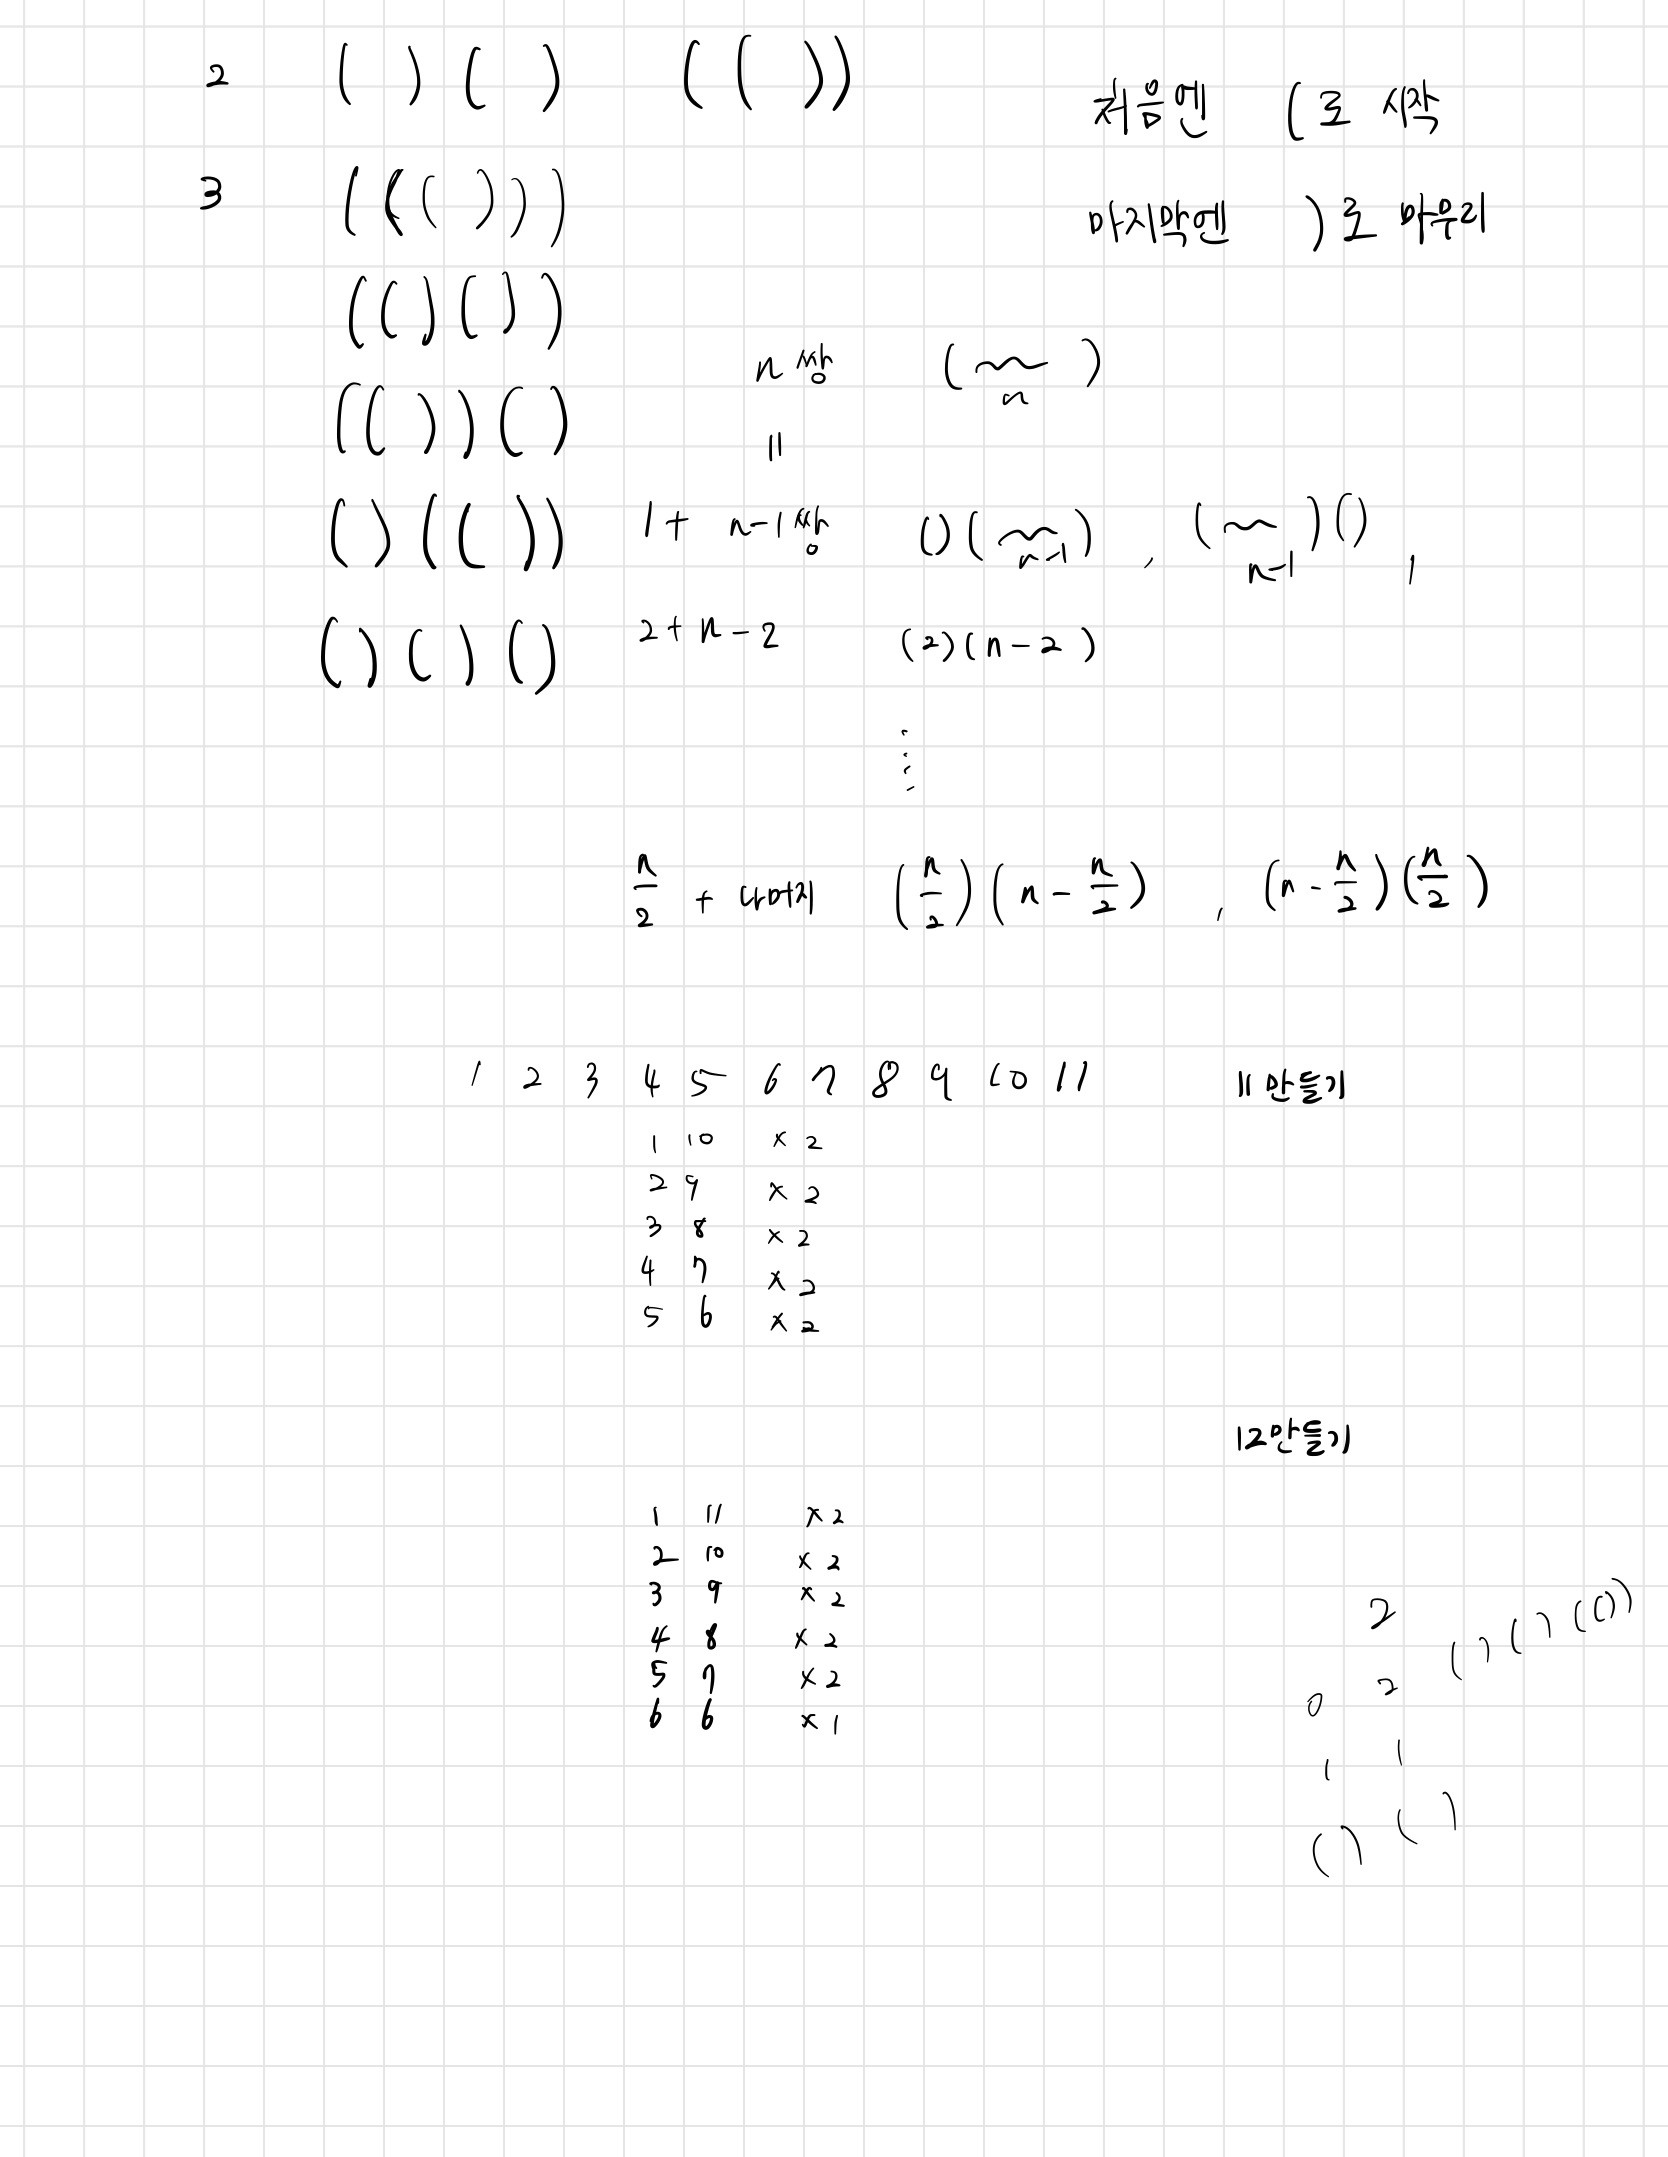 2 ( ) ( ) ( ( ) ) 처음엔 ( 로 시작
3 ( ( ( ) ) ) 마지막엔 ) 로 마무리
( ( ) ( ) )
n쌍 ( n )
( ( ) ) ( ) ||
( ) ( ( ) ) 1 + n-1쌍 ( ) ( n-1 ) , ( n-1 ) ( ) ,
( ) ( ) ( ) 2 + n - 2 (2)(n - 2 )
⋮
n/2 + 나머지 (n/2)(n - n/2) , (n - n/2)(n/2)
1 2 3 4 5 6 7 8 9 10 11 11 만들기
1 10 x 2
2 9 x 2
3 8 x 2
4 7 x 2
5 6 x 2
12만들기
1 11 x 2
2 10 x 2
3 9 x 2
4 8 x 2
5 7 x 2
6 6 x 1
2
( ) ( ) ( ( ) )
0 2
1 1
( ) ( )